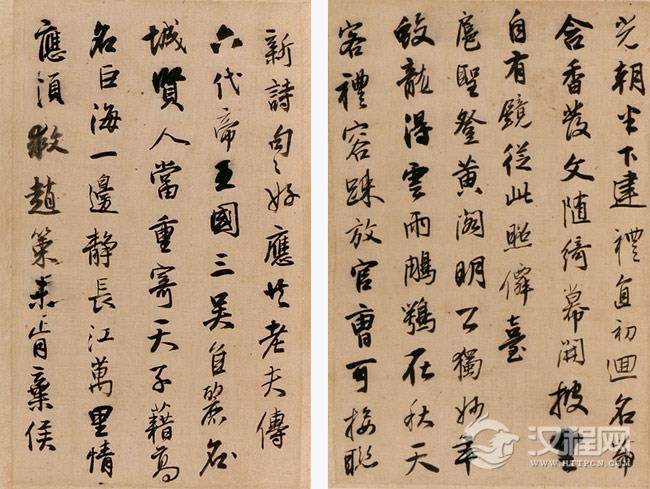 光朝坐下建禮直初迴名筆
含香發文隨綺幕開披雲
自有鏡從此照僊臺
扈聖登黃閣明公獨妙年
蛟龍得雲雨鵰鶚在秋天
客禮容疎放官曹可接聯
新詩句々好應任老夫傳
六代帝王國三吳自麗名
城賢人當重寄天子藉高
名巨海一邊靜長江萬里情
應須救趙策未肯棄侯
汉程网
HTTPCN.COM